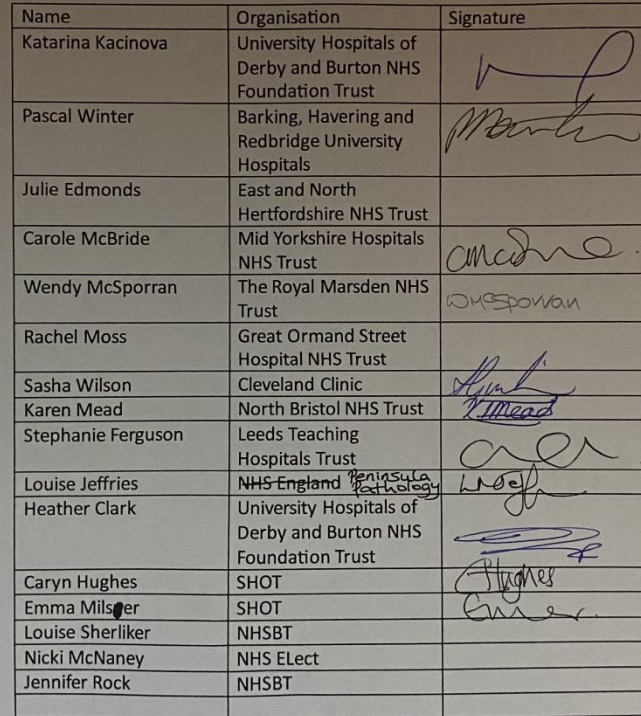 Name Organisation Signature
Katarina Kacinova University Hospitals of
Derby and Burton NHS
Foundation Trust
Pascal Winter Barking, Havering and
Redbridge University
Hospitals
Julie Edmonds East and North
Hertfordshire NHS Trust
Carole McBride Mid Yorkshire Hospitals
NHS Trust
Wendy McSporran The Royal Marsden NHS
Trust WMcSporran
Rachel Moss Great Ormand Street
Hospital NHS Trust
Sasha Wilson Cleveland Clinic
Karen Mead North Bristol NHS Trust KJMead
Stephanie Ferguson Leeds Teaching
Hospitals Trust
Louise Jeffries NHS England Peninsula
Pathology
Heather Clark University Hospitals of
Derby and Burton NHS
Foundation Trust
Caryn Hughes SHOT CHughes
Emma Milser SHOT
Louise Sherliker NHSBT
Nicki McNaney NHS ELect
Jennifer Rock NHSBT